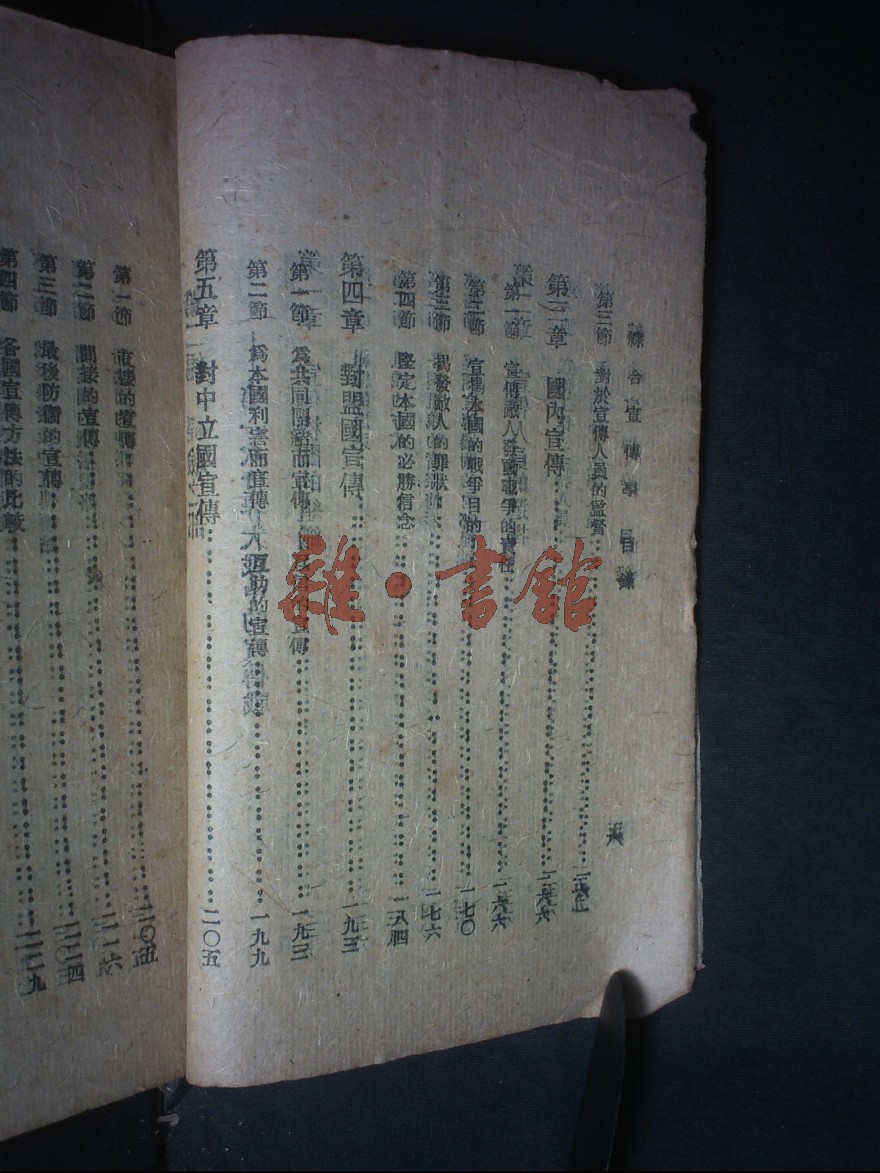 綜合宣傳學目錄
第三節 對於宣傳人員的監督
第三章 國內宣傳 一六六
第一節 宣傳敵人發動戰爭的責任 一六六
第二節 宣揚本國的戰爭目的 一七〇
第三節 揭發敵人的罪狀 一七六
第四節 堅定本國的必勝信念 一八四
第四章 對盟國宣傳 一九三
第一節 為共同團結而宣傳 一九三
第二節 為本國利害而宣傳 一九九
第五章 對中立國宣傳 二〇五
第一節 直接的宣傳 二〇五
第二節 間接的宣傳 二一六
第三節 最後防衛的宣傳 二二四
第四節 各國宣傳方法的比較 二二九
雜·書館